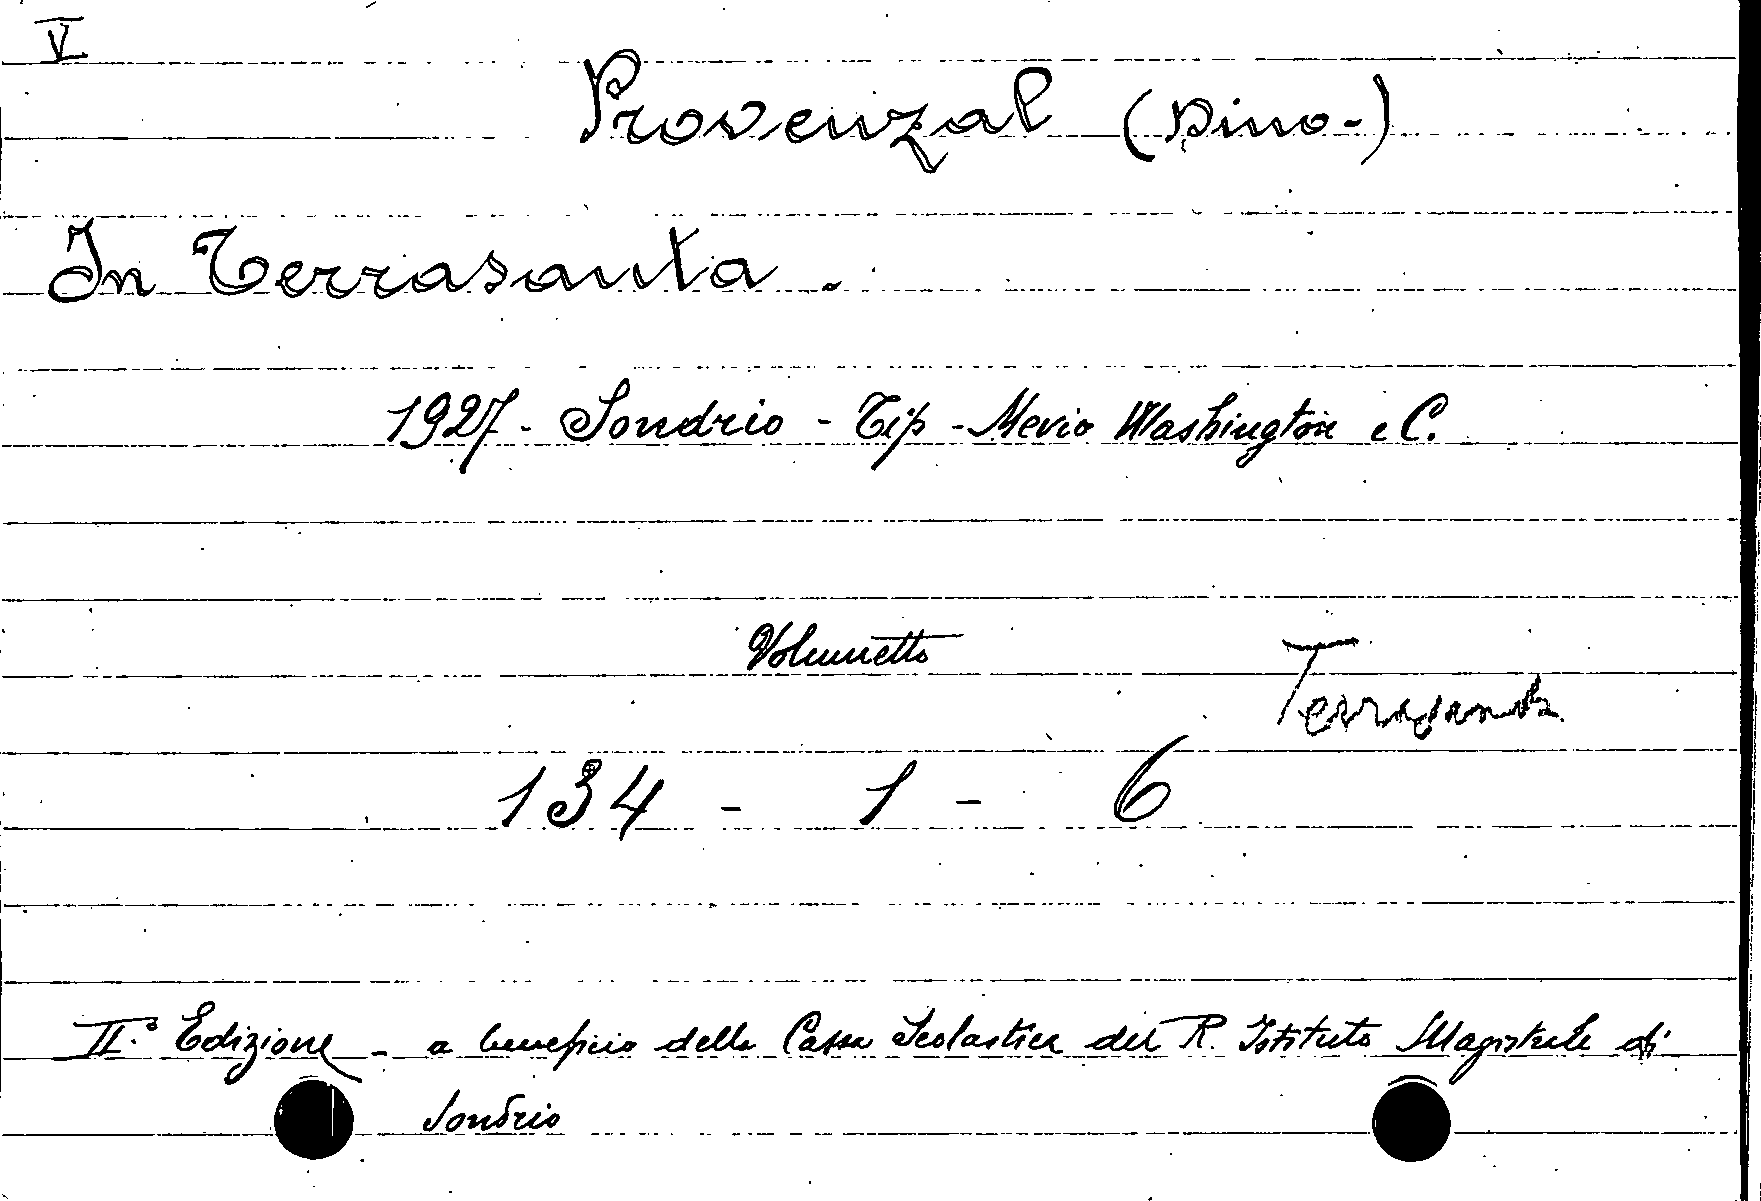 V
Provenzal (Dino-)
In Terrasanta.
1927. Sondrio - Tip - Mevio Washington e C.
Volumetto
Terrasanta
134 - 1 - 6
II.ª Edizione - a beneficio della Cassa Scolastica del R. Istituto Magistrale di
Sondrio